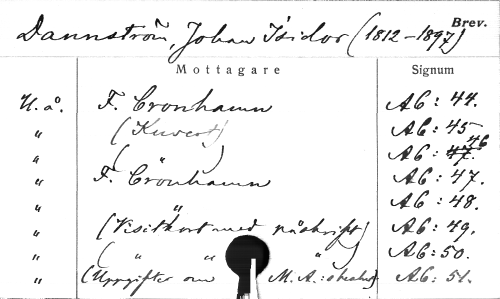 Brev.
Dannström, Johan Isidor (1812-1897)
Mottagare Signum
U.å. F. Cronhamn A6: 44.
" (Kuvert) A6: 45
" ( " ) A6: 47. 46
" F. Cronhamn A6: 47.
" " A6: 48.
" (Visitkort med påskrift) A6: 49.
" ( " " " ) A6: 50.
" (Uppgifter om M.A.: A6: 51.